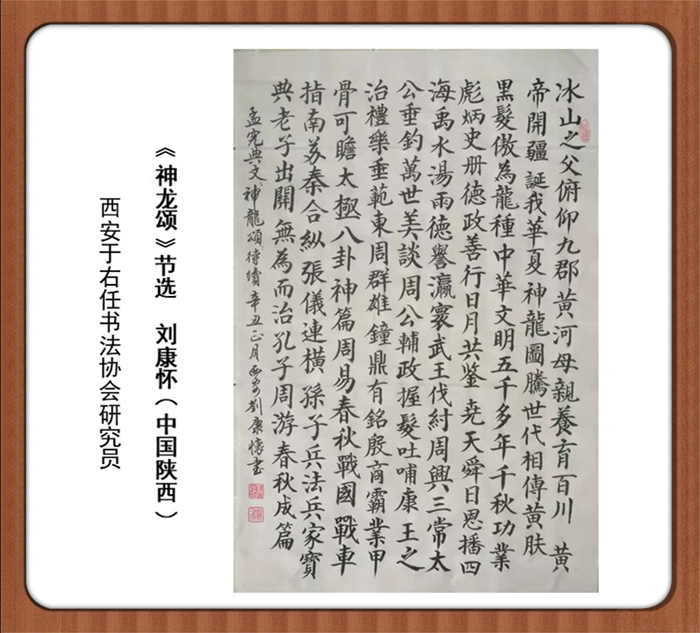 冰山之父俯仰九郡黄河母親養育百川 黄
帝開疆誕我華夏神龍圖騰世代相傳黄肤
黑髮傲為龍種中華文明五千多年千秋功業
彪炳史册德政善行日月共鉴 堯天舜日恩播四
海禹水湯雨德譽瀛寰武王伐紂周興三常太
公垂釣萬世美談周公輔政握髮吐哺康王之
治禮樂垂範東周群雄鐘鼎有銘殷商霸業甲
骨可瞻太極八卦神篇周易春秋戰國 戰車
指南苏秦合纵張儀連横 孫子兵法兵家寶
典老子出關 無為而治孔子周游春秋成篇
孟宪典文神龍頌待續辛丑正月西安劉康懷书
《神龙颂》节选 刘康怀（中国陕西）
西安于右任书法协会研究员